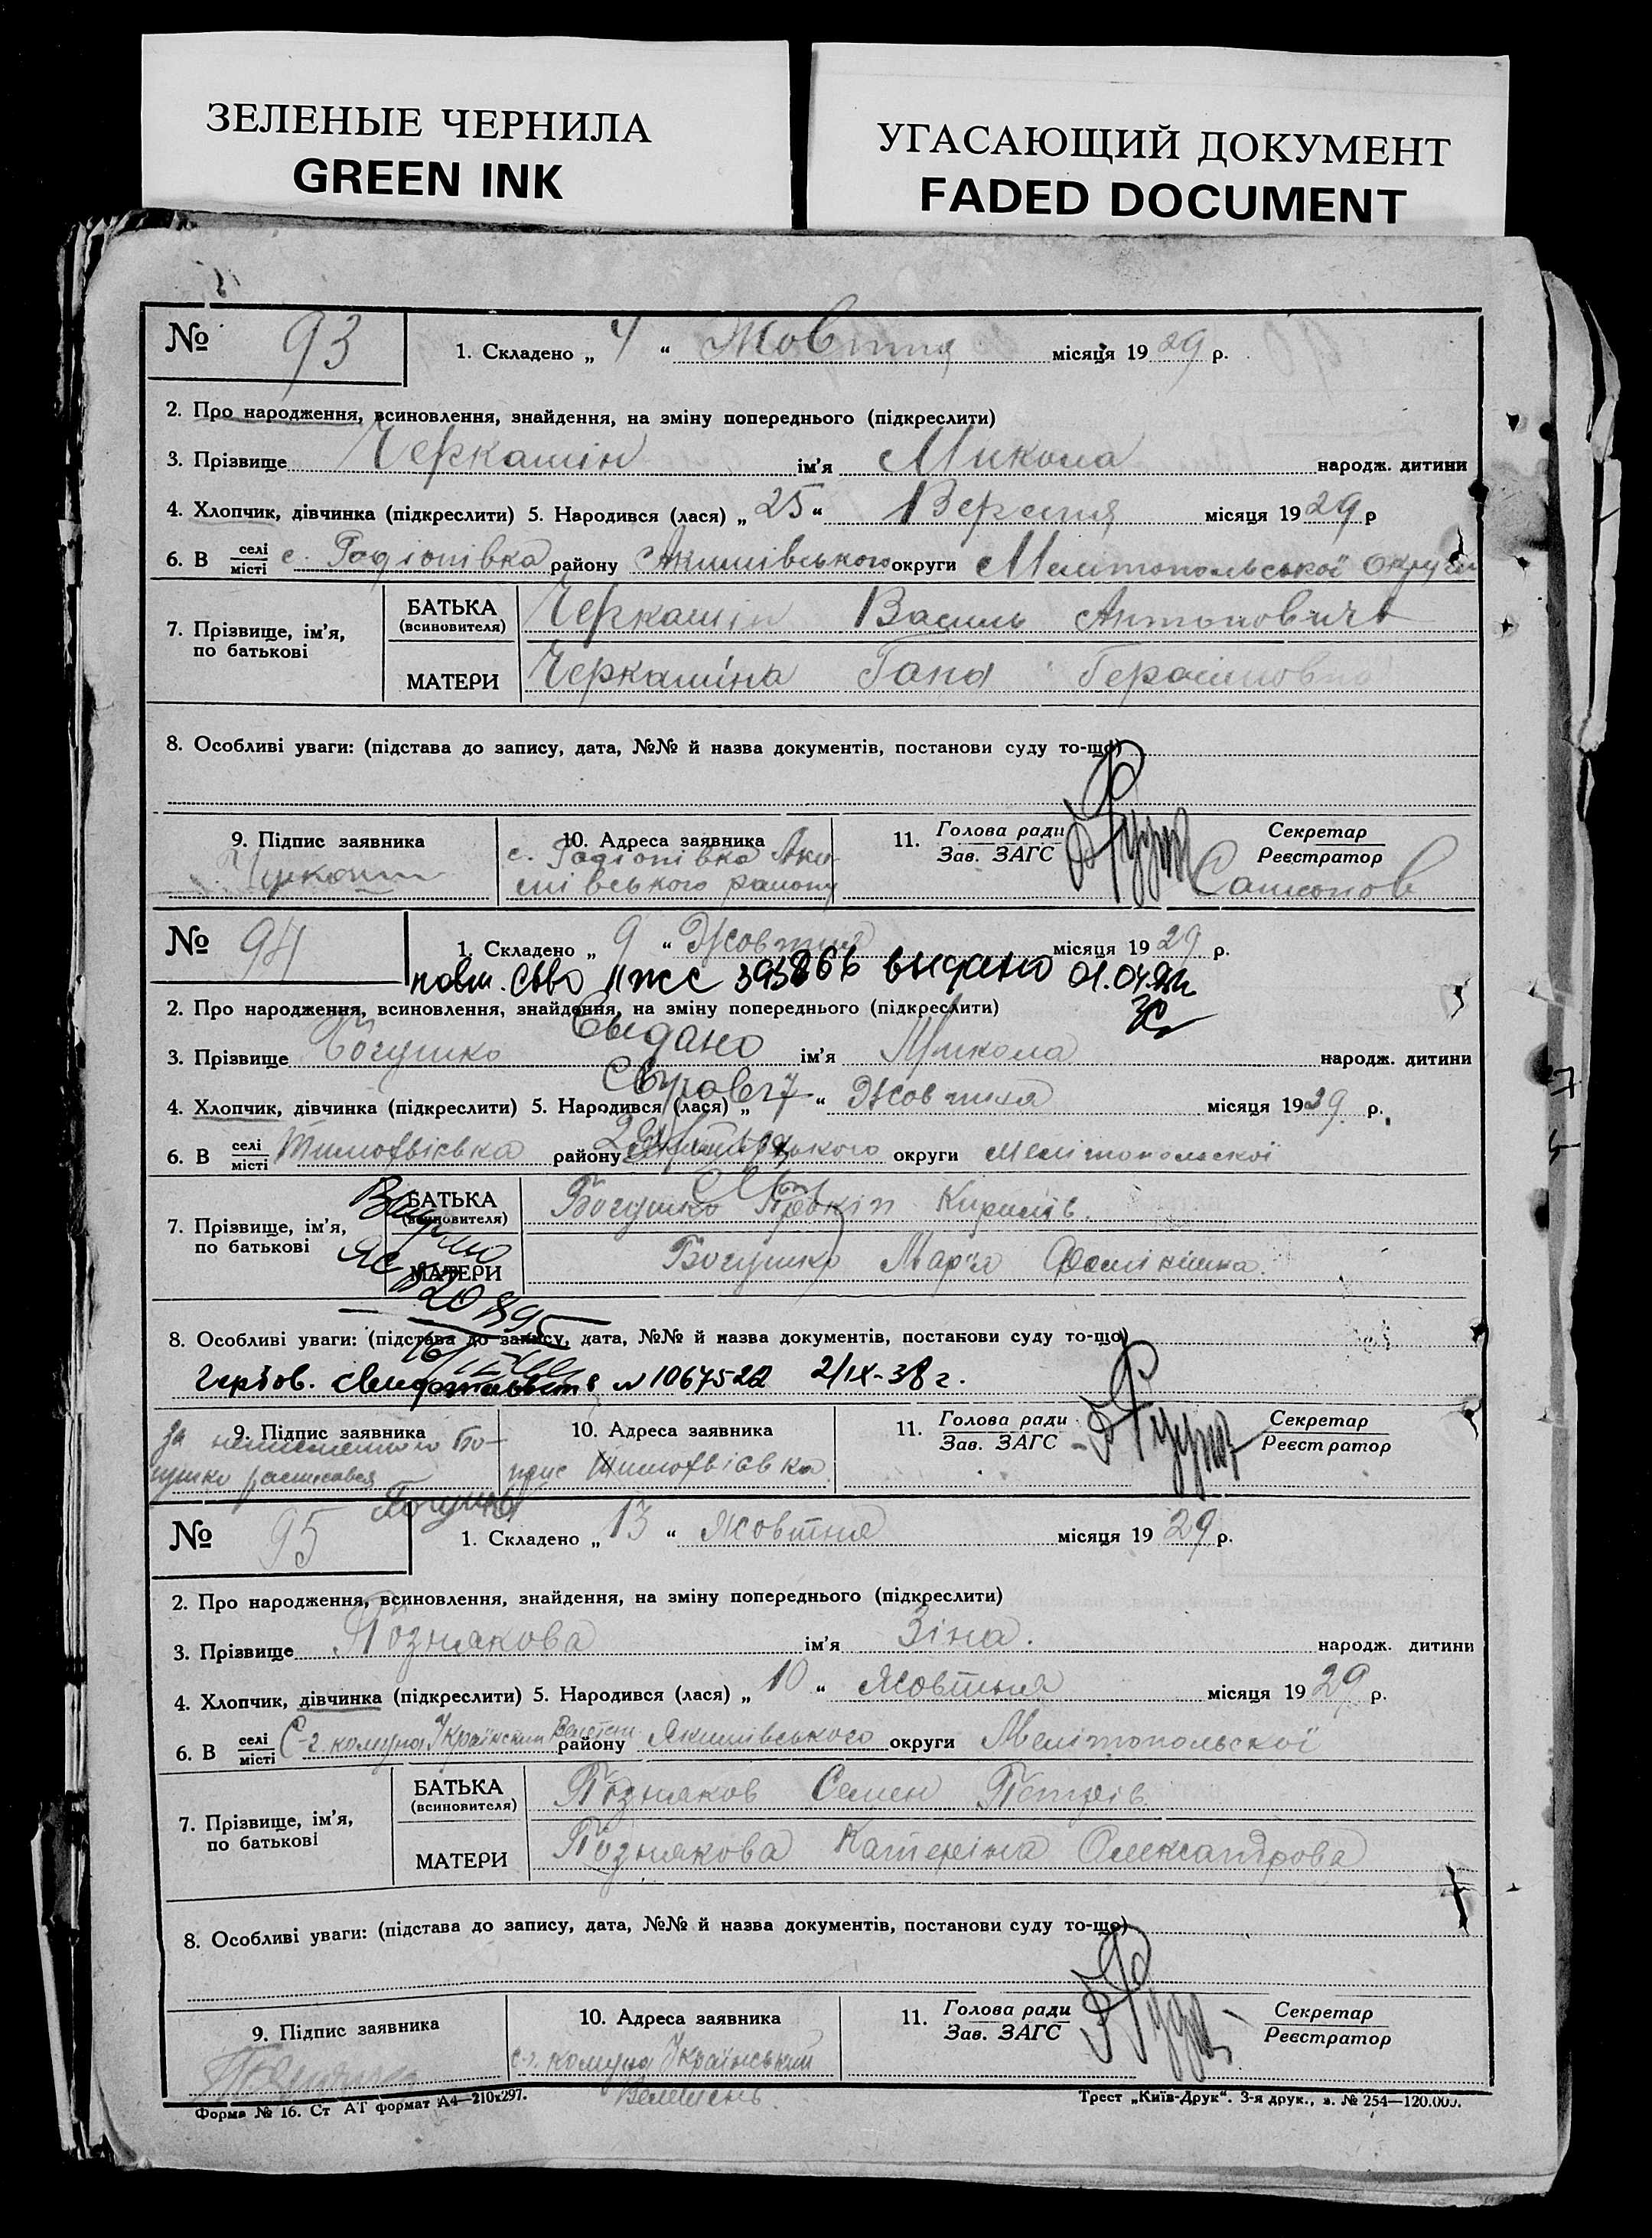 ЗЕЛЕНЫЕ ЧЕРНИЛА
GREEN INK
УГАСАЮЩИЙ ДОКУМЕНТ
FADED DOCUMENT
№ 93 1. Складено „ 4 “ Жовтня місяця 1929 р.
2. Про народження, всиновлення, знайдення, на зміну попереднього (підкреслити)
3. Прізвище Черкашін ім’я Микола народж. дитини
4. Хлопчик, дівчинка (підкреслити) 5. Народився (лася) „ 25 “ Вересня місяця 1929 р
6. В селі місті с. Родіонівка району Якимівського округи Мелітопольської округи
7. Прізвище, ім’я, по батькові
БАТЬКА (всиновителя) Черкашін Василь Антонович
МАТЕРИ Черкашіна Ганна Герасимовна
8. Особливі уваги: (підстава до запису, дата, №№ й назва документів, постанови суду то-що)
9. Підпис заявника
10. Адреса заявника
с. Родіонівка Яки-
мівського району
11. Голова ради Зав. ЗАГС
Секретар Реєстратор
Самсонов
№ 94 1. Складено „ 9 “ Жовтня місяця 1929 р.
повт. св-во II ЖС 395866 выдано 01.04.
2. Про народження, всиновлення, знайдення, на зміну попереднього (підкреслити)
Выдано
3. Прізвище Богушко ім’я Микола народж. дитини
4. Хлопчик, дівчинка (підкреслити) 5. Народився (лася) „ 7 “ Жовтня місяця 1929 р.
6. В селі місті Тимофіївка району Якимівського округи Мелітопольскої
7. Прізвище, ім’я, по батькові
БАТЬКА (всиновителя) Богушко Прокіп Кирилів.
МАТЕРИ Богушко Мар’я
8. Особливі уваги: (підстава до запису, дата, №№ й назва документів, постанови суду то-що)
Гербов. свидетельств № 1067522 2/IX-38 г.
9. Підпис заявника
за неписьменного Бо-
гушко расписався
10. Адреса заявника
Тимофіївка
11. Голова ради Зав. ЗАГС
Секретар Реєстратор
№ 95 1. Складено „ 13 “ Жовтня місяця 1929 р.
2. Про народження, всиновлення, знайдення, на зміну попереднього (підкреслити)
3. Прізвище Познякова ім’я Зіна. народж. дитини
4. Хлопчик, дівчинка (підкреслити) 5. Народився (лася) „ 10 “ Жовтня місяця 1929 р.
6. В селі місті С-г. комуна Український Велетень району Якимівського округи Мелітопольскої
7. Прізвище, ім’я, по батькові
БАТЬКА (всиновителя) Позняков Семен Петрів.
МАТЕРИ Познякова Катеріна Олександрова
8. Особливі уваги: (підстава до запису, дата, №№ й назва документів, постанови суду то-що)
9. Підпис заявника
10. Адреса заявника
с-г. комуна Український
Велетень.
11. Голова ради Зав. ЗАГС
Секретар Реєстратор
Форма № 16. Ст АТ формат А4—210х297.
Трест „Київ-Друк“. 3-я друк., з. № 254—120.000.